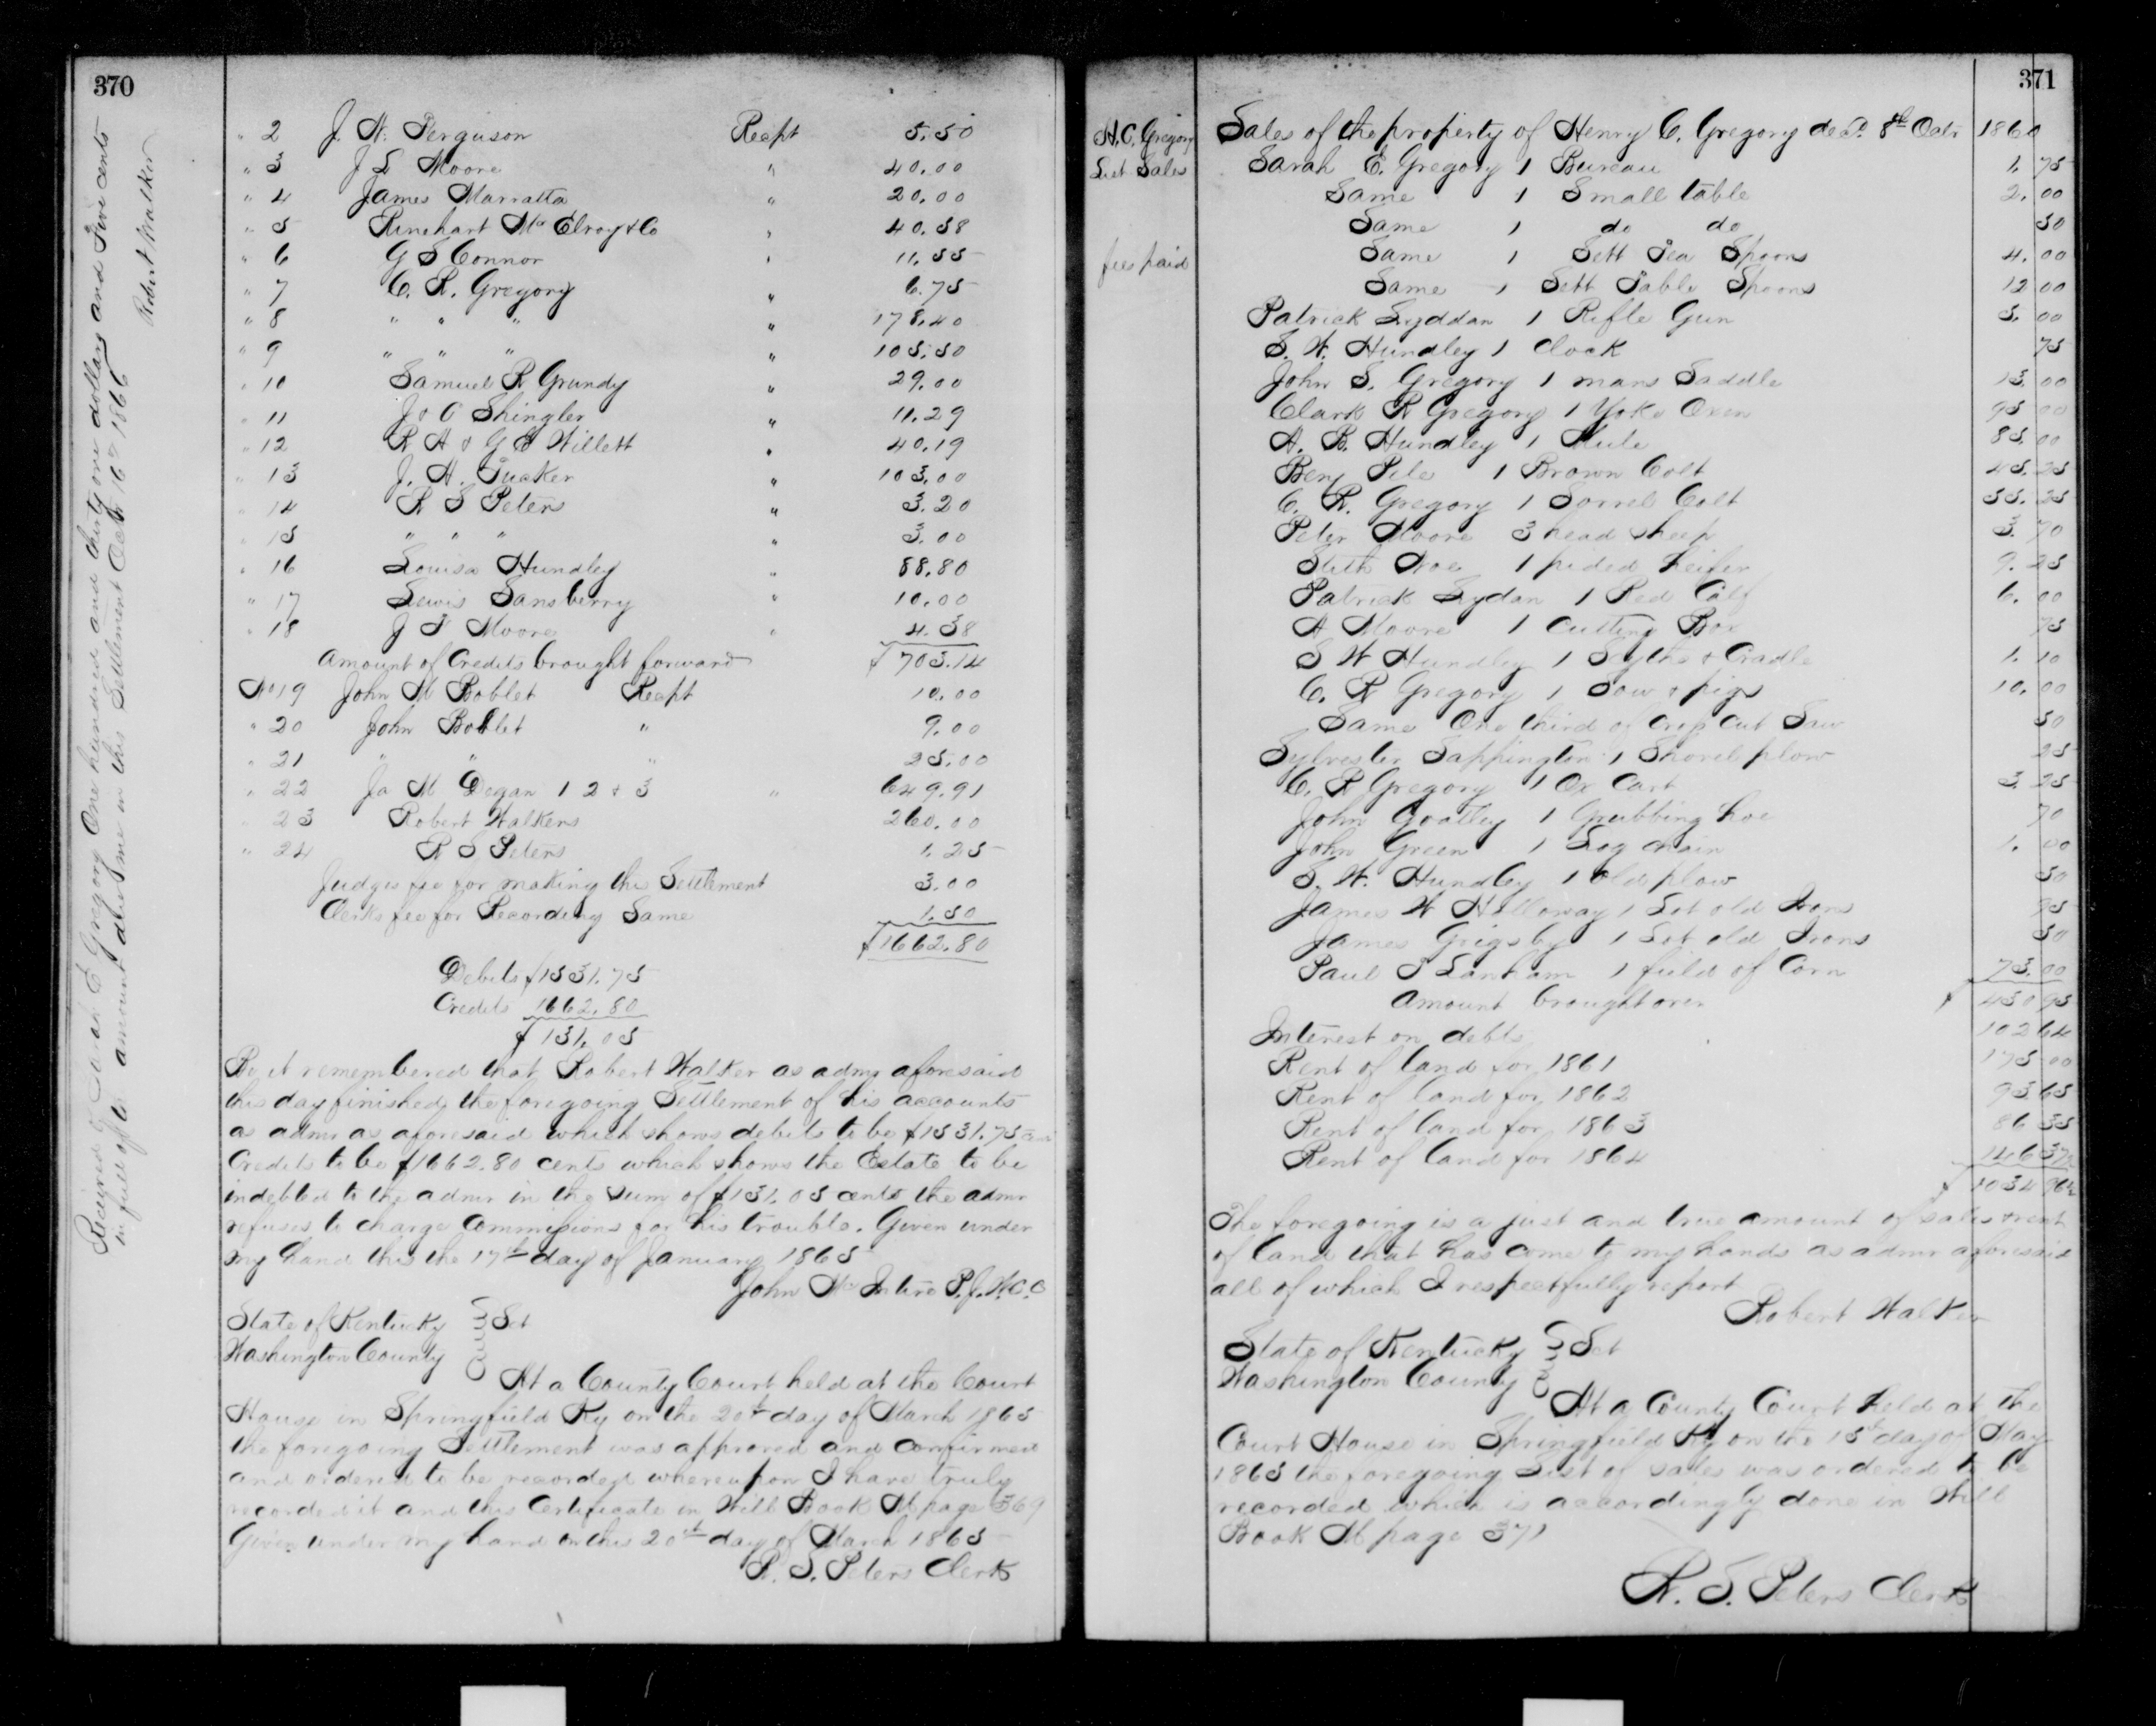 370
" 2 J. W. Ferguson Recpt 5.50
" 3 J L Moore " 40.00
" 4 James Marratta " 20.00
" 5 Rinehart McElroy & Co " 40.58
" 6 G S Connor " 11.55
" 7 C. R. Gregory " 6.75
" 8 " " " " 178.40
" 9 " " " " 105.50
" 10 Samuel R Grundy " 29.00
" 11 J & O Shingler " 11.29
" 12 R H & G E Willett " 40.19
" 13 J. H. Tucker " 103.00
" 14 R S Peters " 3.20
" 15 " " " " 3.00
" 16 Louisa Hundley " 88.80
" 17 Lewis Sansberry " 10.00
" 18 J T Moore " 4.38
Amount of Credits brought forward $703.14
No 19 John M Boblet Recpt 10.00
" 20 John Boblet " 9.00
" 21 " " " 25.00
" 22 Ja M Degan 1 2 & 3 " 649.91
" 23 Robert Walkers 260.00
" 24 R S Peters 1.25
Judges fee for making this Settlement 3.00
Clerks fee for Recording Same 1.50
$1662.80
Debits $1531.75
Credits 1662.80
$131.05
Be it remembered that Robert Walker as admr aforesaid
this day finished the foregoing Settlement of his accounts
as admr as aforesaid which shows debits to be $1531.75
Credits to be $1662.80 cents which shows the Estate to be
indebted to the admr in the sum of $131.05 cents the admr
refuses to charge Commissions for his trouble. Given under
my hand this the 17th day of January 1865
John McIntire P.J.W.C.C
State of Kentucky } Sct
Washington County
At a County Court held at the Court
House in Springfield Ky on the 20th day of March 1865
the foregoing Settlement was approved and confirmed
and ordered to be recorded whereupon I have truly
recorded it and this Certificate in Will Book M page 369
Given under my hand on this 20th day of March 1865
R. S. Peters Clerk
Received of E Gregory One hundred and thirty one dollars and Five cents
in full of the amount due me in this Settlement Octr 16th 1866
Robert Walker
371
H. C. Gregory
List Sales
fees paid
Sales of the property of Henry C. Gregory decd. 8th Octr 1860
Sarah E. Gregory 1 Bureau 1.75
Same 1 Small table 2.00
Same 1 do do 50
Same 1 Sett Tea Spoons 4.00
Same 1 Sett Table Spoons 12 00
Patrick Lyddan 1 Rifle Gun 5.00
S. W. Hundley 1 Clock 75
John S. Gregory 1 mans Saddle 13.00
Clark R Gregory 1 Yoke Oxen 95 00
A. B. Hundley 1 Mule 85.00
Benj Pile 1 Brown Colt 45.25
C. R. Gregory 1 Sorrel Colt 55.25
Peter Moore 3 head sheep 3.70
Stith Noe 1 pided heifer 9.25
Patrick Lydan 1 Red Calf 6.00
A Moore 1 Cutting Box 75
S W Hundley 1 Scythe & Cradle 1.10
C. R Gregory 1 Sow & pigs 10.00
Same One third of Crop Cut Saw 50
Sylvester Sappington 1 Shovel plow 25
C. R Gregory 1 Ox Cart 3.25
John Goatley 1 Grubbing hoe 70
John Green 1 Log chain 1.00
S. W. Hundley 1 old plow 50
James W Holloway 1 Lot old Irons 95
James Grigsby 1 Lot old Irons 50
Paul J Lanham 1 field of Corn 73.00
Amount brought over $430 95
Interest on debts 102 64
Rent of land for 1861 175 00
Rent of land for 1862 93 65
Rent of land for 1863 86 35
Rent of land for 1864 146 37½
$1034 96½
The foregoing is a just and true amount of sales & rent
of land that has come to my hands as admr aforesaid
all of which I respectfully report
Robert Walker
State of Kentucky } Sct
Washington County
At a County Court held at the
Court House in Springfield Ky on the 15th day of May
1865 the foregoing List of sales was ordered to be
recorded which is accordingly done in Will
Book M page 371
R. S. Peters Clerk